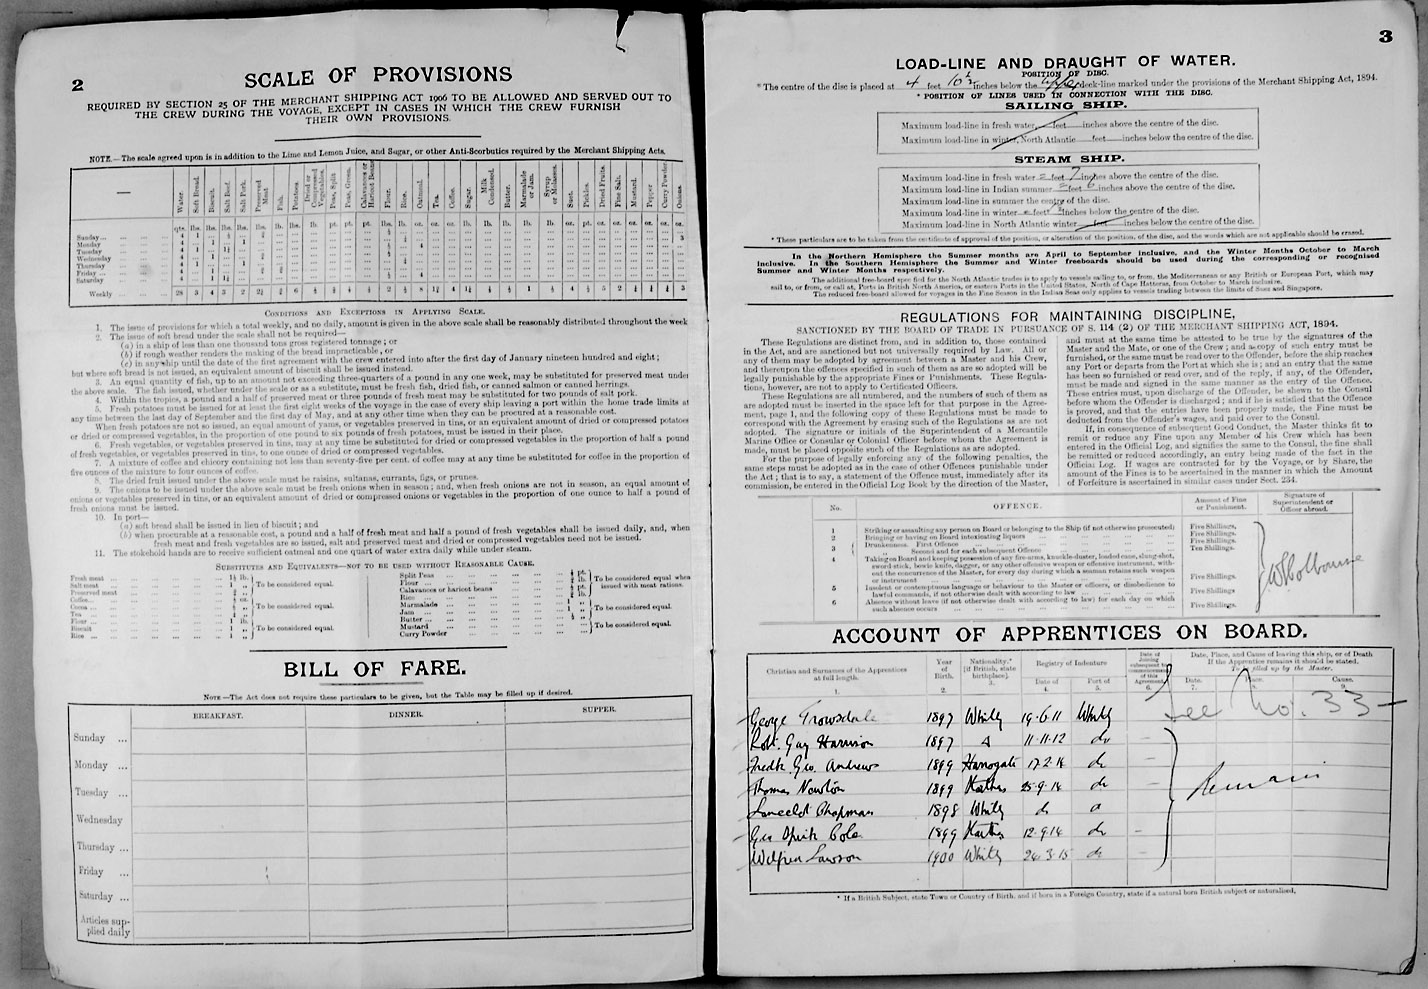 2
SCALE OF PROVISIONS
REQUIRED BY SECTION 25 OF THE MERCHANT SHIPPING ACT 1906 TO BE ALLOWED AND SERVED OUT TO
THE CREW DURING THE VOYAGE, EXCEPT IN CASES IN WHICH THE CREW FURNISH
THEIR OWN PROVISIONS.
NOTE.—The scale agreed upon is in addition to the Lime and Lemon Juice, and Sugar, or other Anti-Scorbutics required by the Merchant Shipping Acts.
Water. Soft Bread. Biscuit. Salt Beef. Salt Pork. Preserved Meat. Fish. Potatoes. Dried or Compressed Vegetables. Peas, Split Peas, Green. Calavances or Haricot Beans Flour. Rice. Oatmeal. Tea. Coffee. Sugar. Milk Condensed. Butter. Marmalade or Jam. Syrup or Molasses. Suet. Pickles. Dried Fruits. Fine Salt. Mustard. Pepper Curry Powder. Onions.
Sunday
Monday
Tuesday
Wednesday
Thursday
Friday
Saturday
Weekly
CONDITIONS AND EXCEPTIONS IN APPLYING SCALE.
1. The issue of provisions for which a total weekly, and no daily, amount is given in the above scale shall be reasonably distributed throughout the week
2. The issue of soft bread under the scale shall not be required—
(a) in a ship of less than one thousand tons gross registered tonnage; or
(b) if rough weather renders the making of the bread impracticable, or
(c) in any ship until the date of the first agreement with the crew entered into after the first day of January nineteen hundred and eight;
but where soft bread is not issued, an equivalent amount of biscuit shall be issued instead.
3. An equal quantity of fish, up to an amount not exceeding three-quarters of a pound in any one week, may be substituted for preserved meat under
the above scale. The fish issued, whether under the scale or as a substitute, must be fresh fish, dried fish, or canned salmon or canned herrings.
4. Within the tropics, a pound and a half of preserved meat or three pounds of fresh meat may be substituted for two pounds of salt pork.
5. Fresh potatoes must be issued for at least the first eight weeks of the voyage in the case of every ship leaving a port within the home trade limits at
any time between the last day of September and the first day of May, and at any other time when they can be procured at a reasonable cost.
When fresh potatoes are not so issued, an equal amount of yams, or vegetables preserved in tins, or an equivalent amount of dried or compressed potatoes
or dried or compressed vegetables, in the proportion of one pound to six pounds of fresh potatoes, must be issued in their place.
6. Fresh vegetables, or vegetables preserved in tins, may at any time be substituted for dried or compressed vegetables in the proportion of half a pound
of fresh vegetables, or vegetables preserved in tins, to one ounce of dried or compressed vegetables.
7. A mixture of coffee and chicory containing not less than seventy-five per cent. of coffee may at any time be substituted for coffee in the proportion of
five ounces of the mixture to four ounces of coffee.
8. The dried fruit issued under the above scale must be raisins, sultanas, currants, figs, or prunes.
9. The onions to be issued under the above scale must be fresh onions when in season; and, when fresh onions are not in season, an equal amount of
onions or vegetables preserved in tins, or an equivalent amount of dried or compressed onions or vegetables in the proportion of one ounce to half a pound of
fresh onions must be issued.
10. In port—
(a) soft bread shall be issued in lieu of biscuit; and
(b) when procurable at a reasonable cost, a pound and a half of fresh meat and half a pound of fresh vegetables shall be issued daily, and, when
fresh meat and fresh vegetables are so issued, salt and preserved meat and dried or compressed vegetables need not be issued.
11. The stokehold hands are to receive sufficient oatmeal and one quart of water extra daily while under steam.
SUBSTITUTES AND EQUIVALENTS—NOT TO BE USED WITHOUT REASONABLE CAUSE.
Fresh meat
Salt meat
Preserved meat
To be considered equal.
Coffee
Cocoa
Tea
To be considered equal.
Flour
Biscuit
Rice
To be considered equal.
Split Peas
Flour
Calavances or haricot beans
Rice
To be considered equal when issued with meat rations.
Marmalade
Jam
Butter
To be considered equal.
Mustard
Curry Powder
To be considered equal.
BILL OF FARE.
NOTE—The Act does not require these particulars to be given, but the Table may be filled up if desired.
BREAKFAST. DINNER. SUPPER.
Sunday
Monday
Tuesday
Wednesday
Thursday
Friday
Saturday
Articles sup-
plied daily
3
LOAD-LINE AND DRAUGHT OF WATER.
POSITION OF DISC.
*The centre of the disc is placed at 4 feet 10½ inches below the upper deck-line marked under the provisions of the Merchant Shipping Act, 1894.
* POSITION OF LINES USED IN CONNECTION WITH THE DISC.
SAILING SHIP.
Maximum load-line in fresh water feet inches above the centre of the disc.
Maximum load-line in winter, North Atlantic feet inches below the centre of the disc.
STEAM SHIP.
Maximum load-line in fresh water feet 7 inches above the centre of the disc.
Maximum load-line in Indian summer feet 6 inches above the centre of the disc.
Maximum load-line in summer the centre of the disc.
Maximum load-line in winter feet inches below the centre of the disc.
Maximum load-line in North Atlantic winter feet inches below the centre of the disc.
* These particulars are to be taken from the certificate of approval of the position, or alteration of the position, of the disc, and the words which are not applicable should be erased.
In the Northern Hemisphere the Summer months are April to September inclusive, and the Winter Months October to March
inclusive. In the Southern Hemisphere the Summer and Winter freeboards should be used during the corresponding or recognised
Summer and Winter Months respectively.
The additional free-board specified for the North Atlantic trades is to apply to vessels sailing to, or from, the Mediterranean or any British or European Port, which may
sail to, or from, or call at, Ports in British North America, or eastern Ports in the United States, North of Cape Hatteras, from October to March inclusive.
The reduced free-board allowed for voyages in the Fine Season in the Indian Seas only applies to vessels trading between the limits of Suez and Singapore.
REGULATIONS FOR MAINTAINING DISCIPLINE,
SANCTIONED BY THE BOARD OF TRADE IN PURSUANCE OF S. 114 (2) OF THE MERCHANT SHIPPING ACT, 1894.
These Regulations are distinct from, and in addition to, those contained
in the Act, and are sanctioned but not universally required by Law. All or
any of them may be adopted by agreement between a Master and his Crew,
and thereupon the offences specified in such of them as are so adopted will be
legally punishable by the appropriate Fines or Punishments. These Regula-
tions, however, are not to apply to Certificated Officers.
These Regulations are all numbered, and the numbers of such of them as
are adopted must be inserted in the space left for that purpose in the Agree-
ment, page 1, and the following copy of these Regulations must be made to
correspond with the Agreement by erasing such of the Regulations as are not
adopted. The signature or initials of the Superintendent of a Mercantile
Marine Office or Consular or Colonial Officer before whom the Agreement is
made, must be placed opposite such of the Regulations as are adopted.
For the purpose of legally enforcing any of the following penalties, the
same steps must be adopted as in the case of other Offences punishable under
the Act; that is to say, a statement of the Offence must, immediately after its
commission, be entered in the Official Log Book by the direction of the Master,
and must at the same time be attested to be true by the signatures of the
Master and the Mate, or one of the Crew; and a copy of such entry must be
furnished, or the same must be read over to the Offender, before the ship reaches
any Port or departs from the Port at which she is; and an entry that the same
has been so furnished or read over, and of the reply, if any, of the Offender,
must be made and signed in the same manner as the entry of the Offence.
These entries must, upon discharge of the Offender, be shown to the Consul
before whom the Offender is discharged; and if he is satisfied that the Offence
is proved, and that the entries have been properly made, the Fine must be
deducted from the Offender's wages, and paid over to the Consul.
If, in consequence of subsequent Good Conduct, the Master thinks fit to
remit or reduce any Fine upon any Member of his Crew which has been
entered in the Official Log, and signifies the same to the Consul, the fine shall
be remitted or reduced accordingly, an entry being made of the fact in the
Official Log. If wages are contracted for by the Voyage, or by Share, the
amount of the Fines is to be ascertained in the manner in which the Amount
of Forfeiture is ascertained in similar cases under Sect. 234.
No. OFFENCE. Amount of Fine or Punishment. Signature of Superintendent or Officer abroad.
1 Striking or assaulting any person on Board or belonging to the Ship (if not otherwise prosecuted) Five Shillings.
2 Bringing or having on Board intoxicating liquors Five Shillings.
3 Drunkenness. First Offence Five Shillings.
" Second and for each subsequent Offence Ten Shillings.
4 Taking on Board and keeping possession of any fire-arms, knuckle-duster, loaded cane, slung-shot,
sword-stick, bowie knife, dagger, or any other offensive weapon or offensive instrument, with-
out the concurrence of the Master, for every day during which a seaman retains such weapon
or instrument Five Shillings.
5 Insolent or contemptuous language or behaviour to the Master or officers, or disobedience to
lawful commands, if not otherwise dealt with according to law Five Shillings
6 Absence without leave (if not otherwise dealt with according to law) for each day on which
such absence occurs Five Shillings.
ACCOUNT OF APPRENTICES ON BOARD.
Christian and Surnames of the Apprentices at full length. Year of Birth. Nationality.* (If British, state birthplace). Registry of Indenture Date of Joining subsequent to commencement of this Agreement. Date, Place, and Cause of leaving this ship, or of Death
If the Apprentice remains it should be stated.
To be filled up by the Master.
Date of Port of Date. Place. Cause.
1. 2. 3. 4. 5. 6. 7. 8. 9.
George Trowsdale 1897 Whitby 19·6·11 Whitby See No. 33
Robt. Guy Harrison 1897 11·11·12 do
Fredk. Geo. Andrews 1899 Harrogate 17·2·14 do
Thomas Newton 1899 25·9·14 do Remain
Lancelot Chapman 1898 Whitby do
Geo Cole 1899 12·9·14 do
Wilfred Lawson 1900 Whitby 24·3·15 do
* If a British Subject, state Town or Country of Birth, and if born in a Foreign Country, state if a natural born British subject or naturalised.